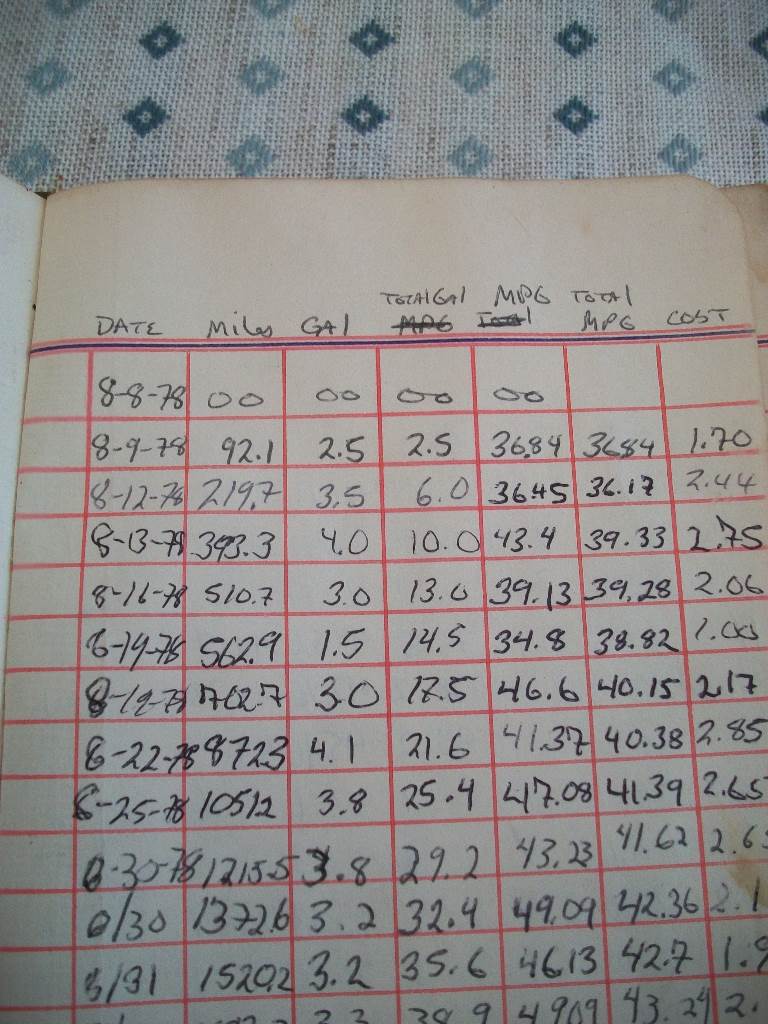 TOTAL GAl MPG TOTAL
DATE Miles GAl MPG Total MPG COST
8-8-78 00 00 00 00
8-9-78 92.1 2.5 2.5 36.84 36.84 1.70
8-12-78 219.7 3.5 6.0 36.45 36.17 2.44
8-13-78 393.3 4.0 10.0 43.4 39.33 2.75
8-16-78 510.7 3.0 13.0 39.13 39.28 2.06
8-19-78 562.9 1.5 14.5 34.8 38.82 1.00
8-19-78 702.7 3.0 17.5 46.6 40.15 2.17
8-22-78 872.3 4.1 21.6 41.37 40.38 2.85
8-25-78 1051.2 3.8 25.4 47.08 41.39 2.65
8-30-78 1215.5 3.8 29.2 43.23 41.62 2.6
8/30 1372.6 3.2 32.4 49.09 42.36 2.1
8/31 1520.2 3.2 35.6 46.13 42.7 1.9
3.3 38.9 49.09 43.24 2.